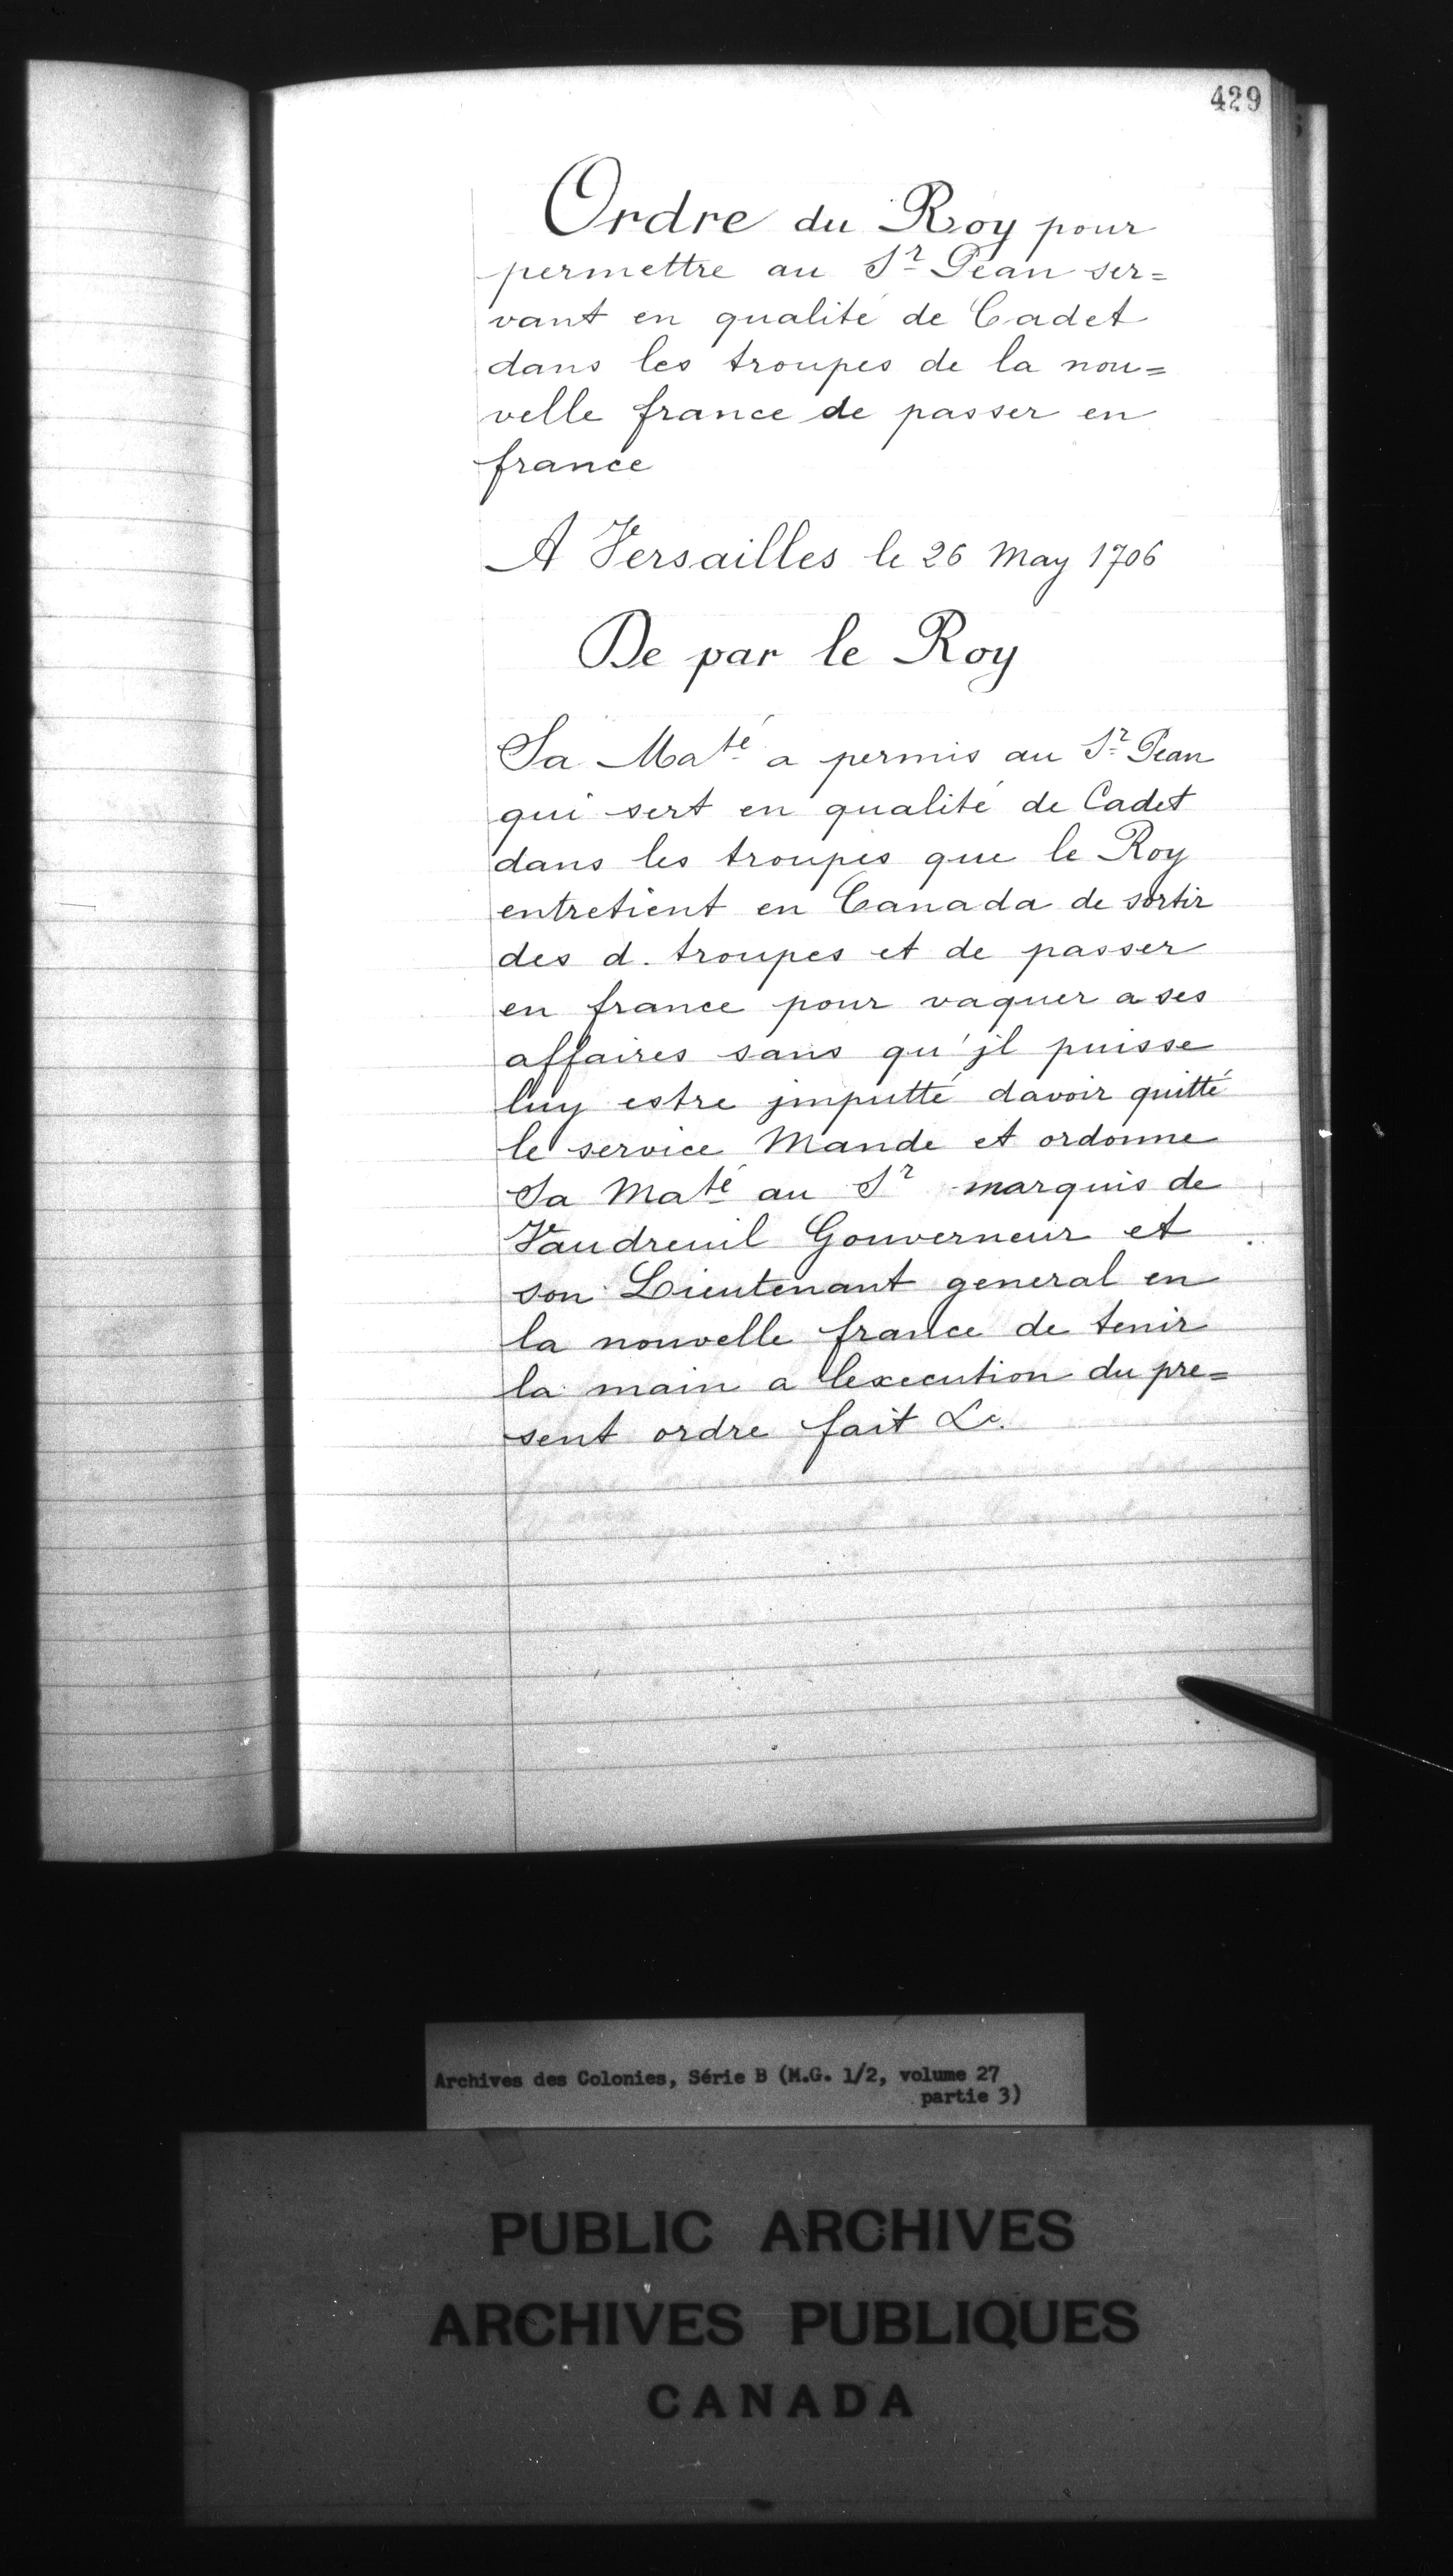 429
Ordre du Roy pour
permettre au Sr Pean ser=
vant en qualité de Cadet
dans les troupes de la nou=
velle france de passer en
france
A Versailles le 26 May 1706
De par le Roy
Sa Maté a permis au Sr Pean
qui sert en qualité de Cadet
dans les troupes que le Roy
entretient en Canada de sortir
des d. troupes et de passer
en france pour vaquer a ses
affaires sans qu'jl puisse
luy estre jmputté davoir quitté
le service Mande et ordonne
Sa Maté au Sr marquis de
Vaudreuil Gouverneur et
son Lieutenant general en
la nouvelle france de tenir
la main a lexecution du pre=
sent ordre fait &c.
Archives des Colonies, Série B (M.G. 1/2, volume 27
partie 3)
PUBLIC ARCHIVES
ARCHIVES PUBLIQUES
CANADA